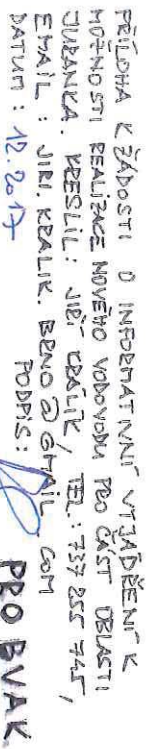 PŘÍLOHA K ŽÁDOSTI O INFORMATIVNÍ VYJÁDŘENÍ K
MOŽNOSTI REALIZACE NOVÉHO VODOVODU PRO ČÁST OBLASTI
JURANKA. KRESLIL: JIŘÍ KRÁLÍK, TEL.: 737 255 745,
EMAIL: JIRI.KRALIK.BRNO@GMAIL.COM
DATUM: 12.2017 PODPIS:
PRO BVAK